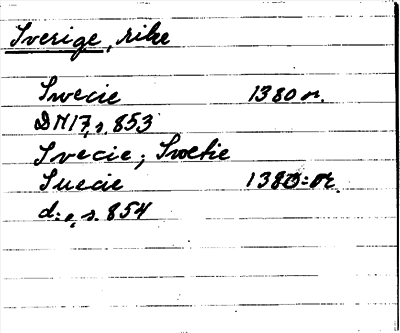 Sverige, rike
Swecie 1380 or.
DN17, s. 853
Svecie; Swetie
Suecie 1380: or.
d:o, s. 854